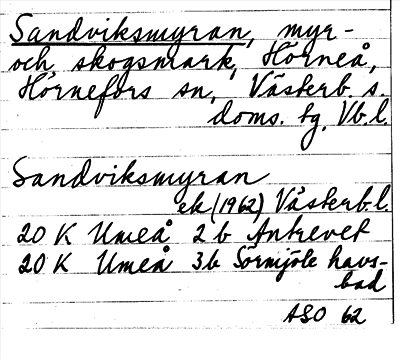 Sandviksmyran, myr-
och skogsmark, Hörneå,
Hörnefors sn, Västerb. s.
doms. tg, Vb.l.
Sandviksmyran
ek (1962) Västerb.l.
20 K Umeå 2b Antrevet
20 K Umeå 3b Sörmjöle havs-
bad
ASO 62